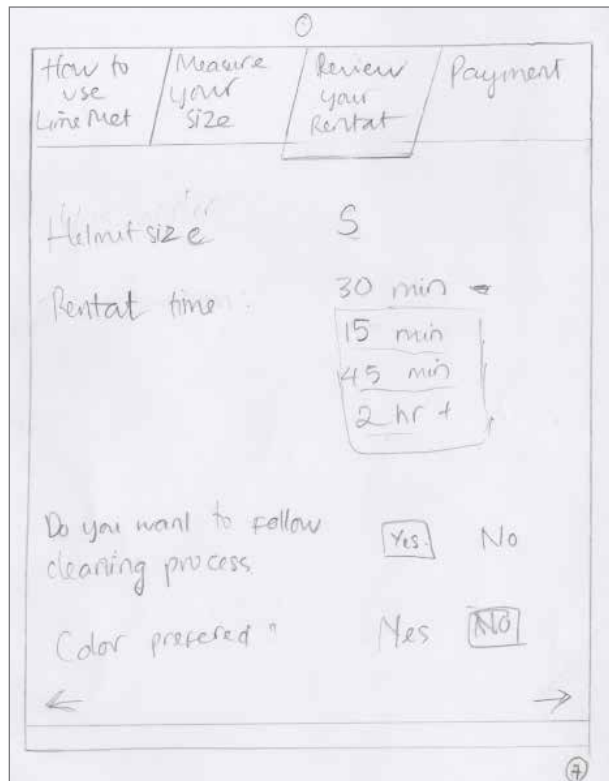 How to use LimeMet
Measure your size
Review your Rental
Payment
Helmet size S
Rental time: 30 min
15 min
45 min
2 hr +
Do you want to follow Yes. No
cleaning process
Color prefered " Yes No